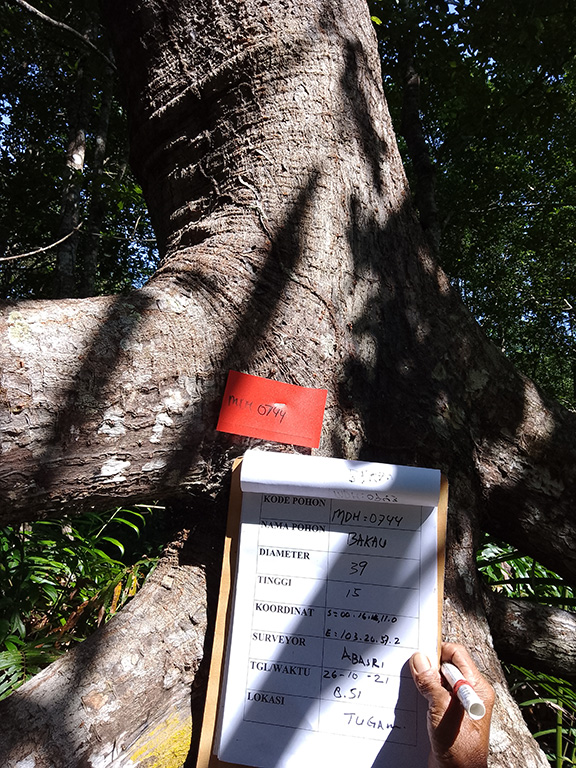 MDH 0744
KODE POHON MDH=0744
NAMA POHON BAKAU
DIAMETER 39
TINGGI 15
KOORDINAT S=00.16.18,11.0
SURVEYOR E=103.26.57.2
ABASRI
TGL/WAKTU 26-10-21
LOKASI 8.51